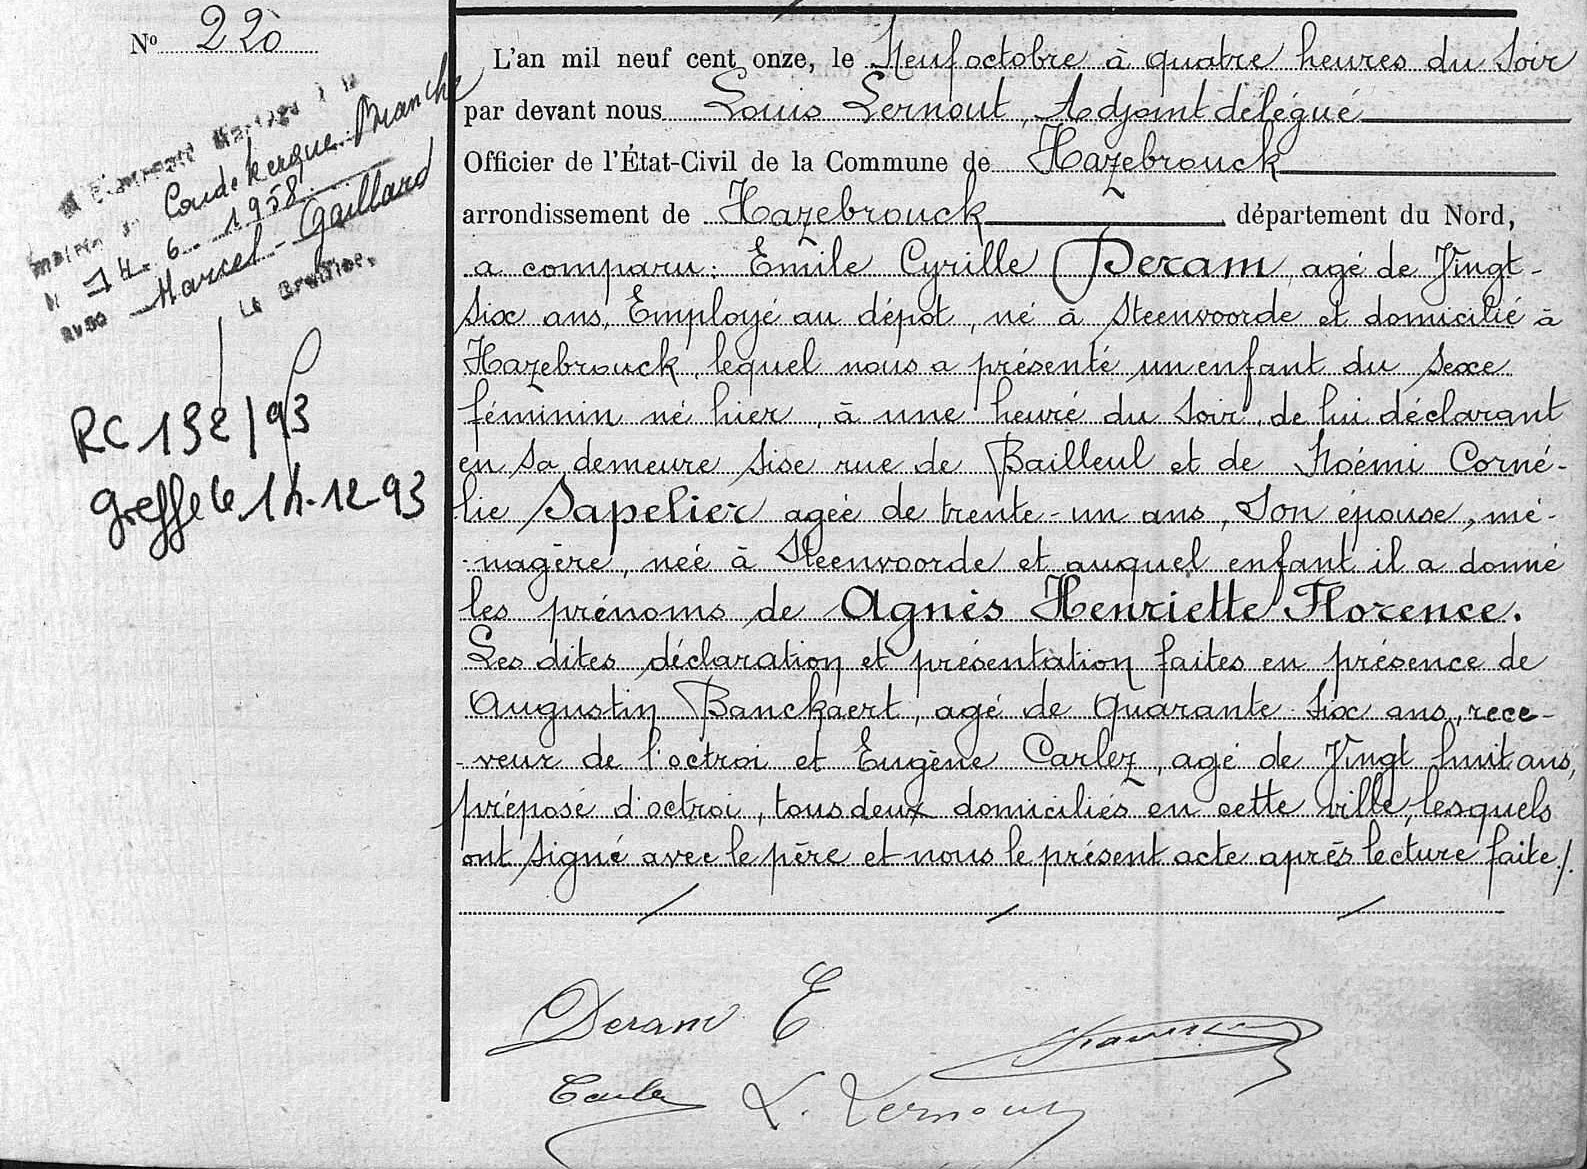 N° 220
Mariage à la
mairie de Coudekerque-Branche
le 14-6-1958
avec Marcel Gaillard
Le Greffier.
RC 132/93
Greffe le 14-12-93
L'an mil neuf cent onze, le Neuf octobre à quatre heures du soir
par devant nous Louis Lernout, Adjoint délégué
Officier de l'État-Civil de la Commune de Hazebrouck
arrondissement de Hazebrouck département du Nord,
a comparu: Emile Cyrille Deram, agé de Vingt-
six ans, Employé au dépot, né à Steenvoorde et domicilié à
Hazebrouck, lequel nous a présenté un enfant du sexe
féminin né hier, à une heure du soir, de lui déclarant
en sa demeure sise rue de Bailleul et de Noémi Corné-
lie Sapelier agée de trente-un ans, Son épouse, mé-
-nagère, née à Steenvoorde et auquel enfant il a donné
les prénoms de Agnès Henriette Florence.
Les dites déclaration et présentation faites en présence de
Augustin Banckaert, agé de Quarante six ans, rece-
-veur de l'octroi et Eugène Carlez, agé de Vingt huit ans,
préposé d'octroi, tous deux domiciliés en cette ville, lesquels
ont signé avec le père et nous le présent acte après lecture faite./.
Deram E
Carlez L. Lernout